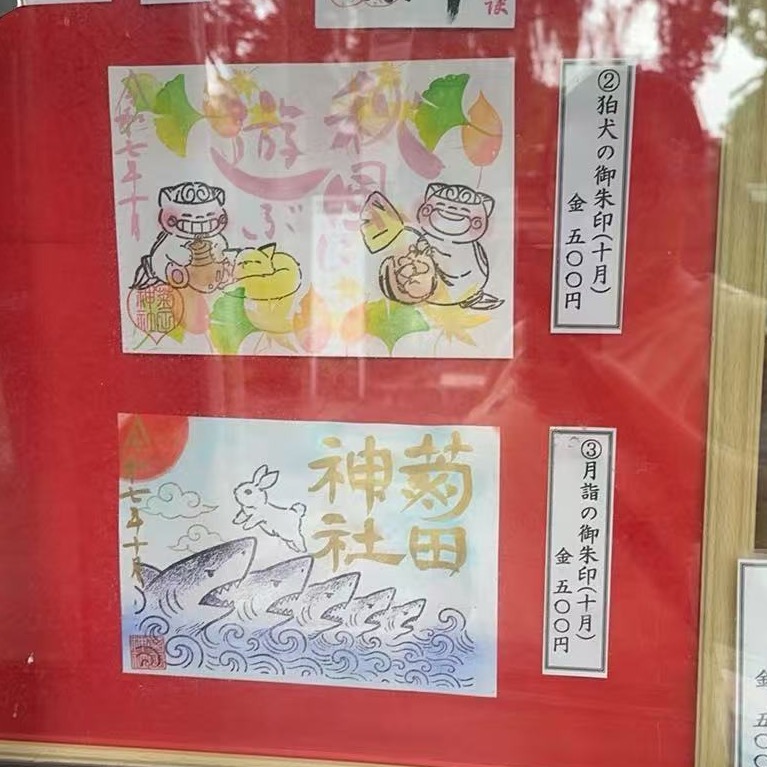 ②狛犬の御朱印(十月)
金 五〇〇円
秋風に
遊ぶ
令和七年十月
菊田神社
③月詣の御朱印(十月)
金 五〇〇円
菊田
神社
令和七年十月